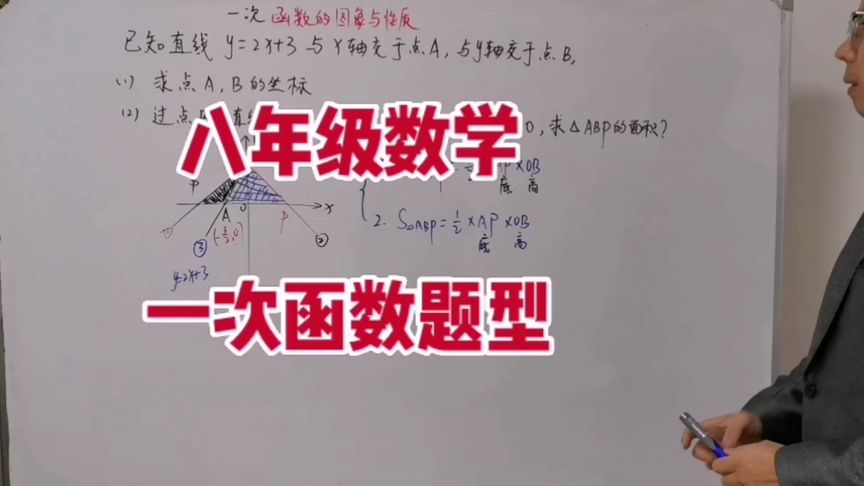 一次函数的图象与性质
已知直线 y=2x+3 与 x轴交于点A,与y轴交于点B,
(1) 求点A,B的坐标
(2) 过点
0,求△ABP的面积?
八年级数学
P×OB
底 高
P
A
0
P
x
2. S△ABP=½×AP×OB
底 高
①
(-3/2,0)
②
③
y=2x+3
一次函数题型